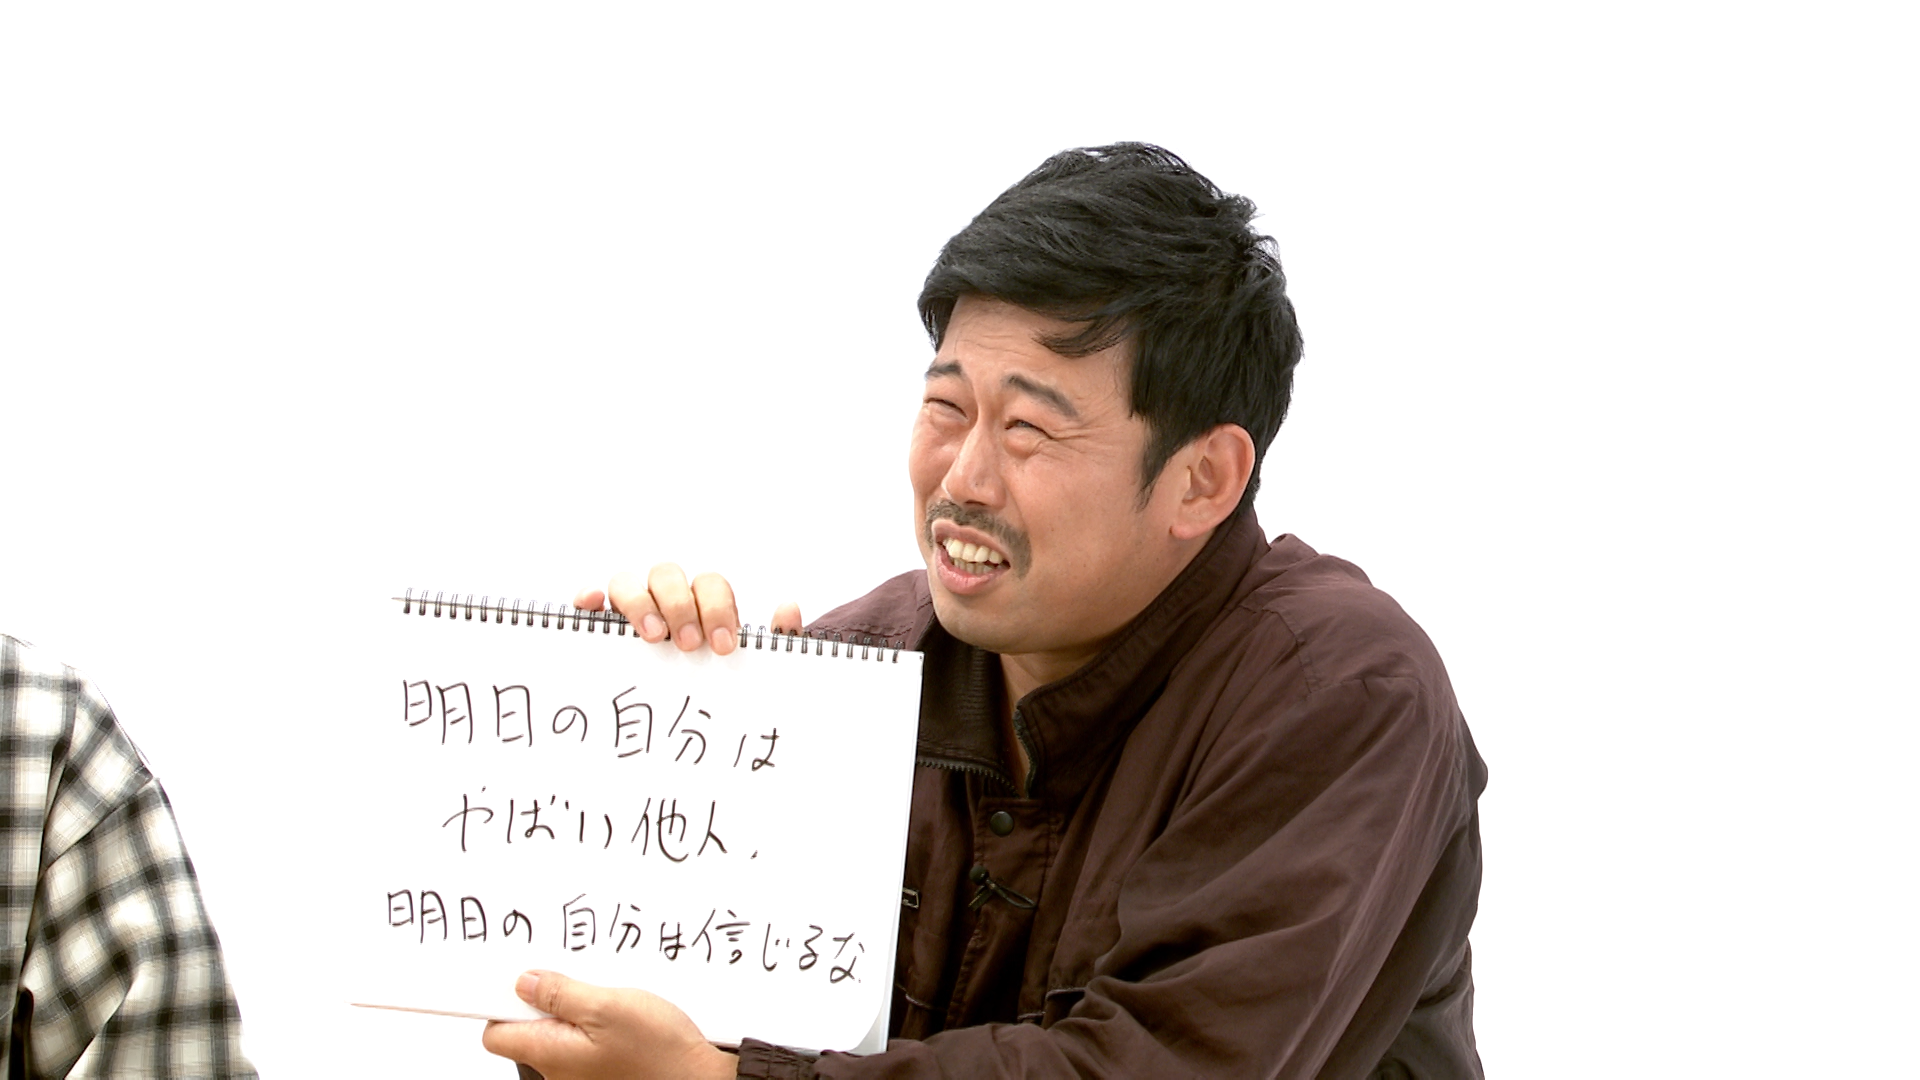 明日の自分は
やばい他人.
明日の自分は信じるな.